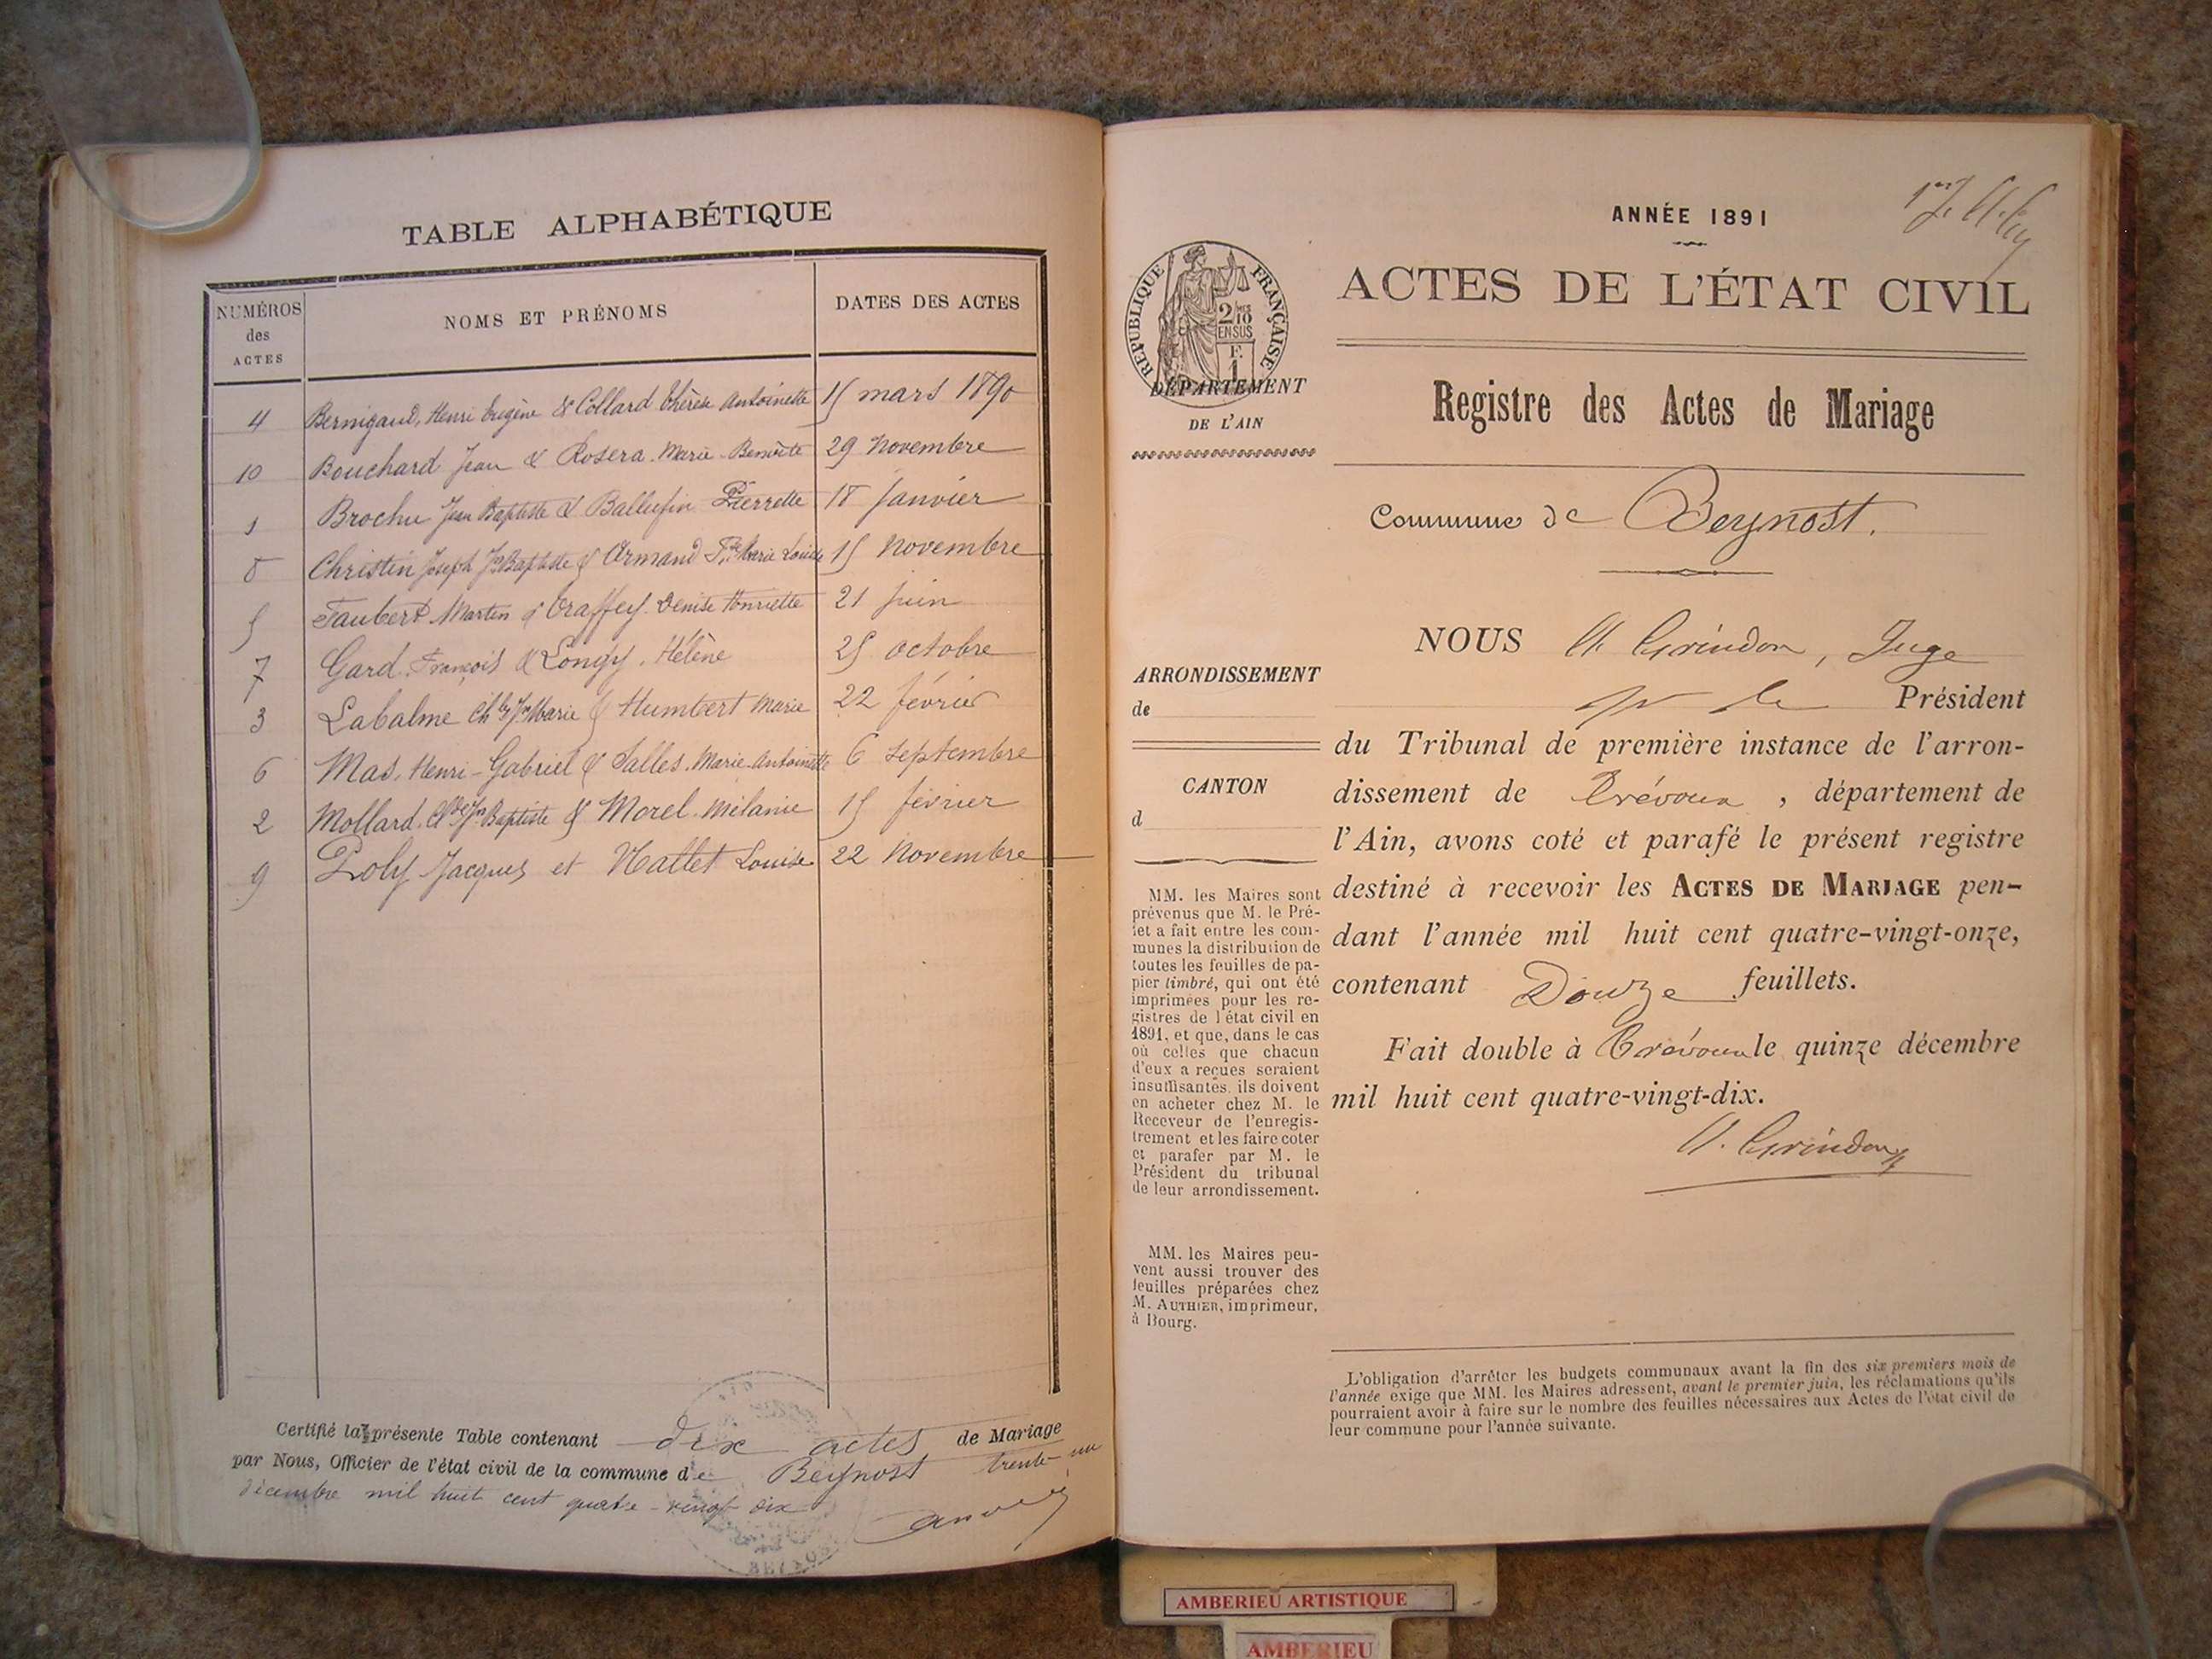 TABLE ALPHABÉTIQUE
NUMÉROS des ACTES
NOMS ET PRÉNOMS
DATES DES ACTES
4 Bernigaud, Henri Eugène & Collard Thérèse Antoinette 15 mars 1890
10 Bouchard Jean & Rosera Marie-Benoîte 29 Novembre
1 Brochu Jean Baptiste & Ballufin Pierrette 18 Janvier
8 Christin Joseph Jn Baptiste & Armand Marie Louise 15 Novembre
5 Faubert Martin & Traffey Denise Henriette 21 Juin
7 Gard François & Longy, Hélène 25 octobre
3 Labalme Marie & Humbert Marie 22 février
6 Mas, Henri-Gabriel & Salles, Marie-Antoinette 6 Septembre
2 Mollard, Baptiste & Morel, Mélanie 15 février
9 Poly Jacques et Nallet Louise 22 Novembre
Certifié la présente Table contenant dix actes de Mariage
par Nous, Officier de l'état civil de la commune de Beynost trente-un
décembre mil huit cent quatre-vingt dix
ANNÉE 1891
RÉPUBLIQUE FRANÇAISE
2/10
EN SUS
F.
1
ACTES DE L'ÉTAT CIVIL
DÉPARTEMENT
DE L'AIN
Registre des Actes de Mariage
Commune de Beynost.
ARRONDISSEMENT
de
CANTON
d
MM. les Maires sont
prévenus que M. le Pré-
fet a fait entre les com-
munes la distribution de
toutes les feuilles de pa-
pier timbré, qui ont été
imprimées pour les re-
gistres de l'état civil en
1891, et que, dans le cas
où celles que chacun
d'eux a reçues seraient
insuffisantes, ils doivent
en acheter chez M. le
Receveur de l'enregis-
trement et les faire coter
et parafer par M. le
Président du tribunal
de leur arrondissement.
MM. les Maires peu-
vent aussi trouver des
feuilles préparées chez
M. AUTHIER, imprimeur,
à Bourg.
NOUS A. Grindon, Juge
Président
du Tribunal de première instance de l'arron-
dissement de Trévoux, département de
l'Ain, avons coté et parafé le présent registre
destiné à recevoir les ACTES DE MARIAGE pen-
dant l'année mil huit cent quatre-vingt-onze,
contenant Douze feuillets.
Fait double à Trévoux le quinze décembre
mil huit cent quatre-vingt-dix.
A. Grindon
L'obligation d'arrêter les budgets communaux avant la fin des six premiers mois de
l'année exige que MM. les Maires adressent, avant le premier juin, les réclamations qu'ils
pourraient avoir à faire sur le nombre des feuilles nécessaires aux Actes de l'état civil de
leur commune pour l'année suivante.
AMBERIEU ARTISTIQUE
AMBERIEU